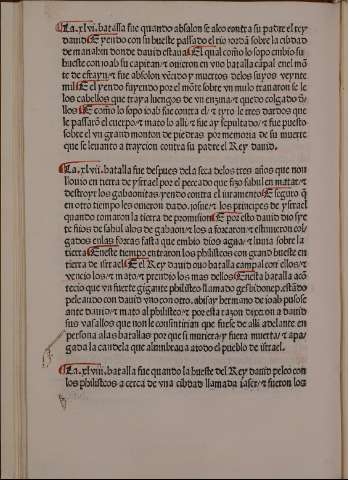 La .xlvi. batalla fue quando absalon se alço contra su padre el rey
dauid E yendo con su hueste passado el rio iordā sobre la cibdad
de manahin donde dauid estaua El qual como lo sopo embio su
hueste con ioab su capitan ⁊ ouieron en vno batalla cāpal en el mō
te de efrayn ⁊ fue absolon vēcido y muertos delos suyos veynte
mil E el yendo fuyendo por el mōte sobre vn mulo trauaron se le
los cabellos que traya luengos de vn enzina ⁊ quedo colgado d̄
llos E como lo sopo ioab fue contra el ⁊ tyro le tres dardos que
le passarō el cuerpo ⁊ mato lo alli ⁊ fue ay sepultado ⁊ fue puesto
sobre el vn grand monton de piedras por memoria de su muerte
que se leuanto a trayciōn contra su padre el Rey dauid.
La .xlvii. batalla fue despues dela seca delos tres años que non
llouio en tierra de ysrael por el peccado que fizo sahul en matar ⁊
destroyr los gabaonitas yendo contra el iuramento E seguro q̄
en otro tiempo les ouieron dado. josue ⁊ los principes de ysrael
quando tomaron la tierra de promision E por esto dauid dio sye
te fiios de sahul alos de gabaon ⁊ los aforcaron ⁊ estuuieron col
gados enlas forcas fasta que embio dios agua ⁊ lluuia sobre la
tierra Eneste tiempo entraron los philisteos con grand hueste en
tierra de israel E el Rey dauid ouo batalla campal con ellos ⁊
vencio los ⁊ mato ⁊ prendio los mas dellos Enesta batalla acō
tecio que vn fuerte gigante philisteo llamado gesbidonep. estādo
peleando con dauid vno con otro. abisay hermano de ioab puso se
ante dauid ⁊ mato al philisteo ⁊ por esta razon dixeron a dauid
sus vasallos que non le consintirian que fuese de alli adelante en
persona alas batallas por que si muriera ⁊ fuera muerta ⁊ apa
gada la candela que alumbraua a todo el pueblo de israel.
La .xlviii. batalla fue quando la hueste del Rey dauid peleo con
los philisteos a cerca de vna cibdad llamada jaser ⁊ fueron los